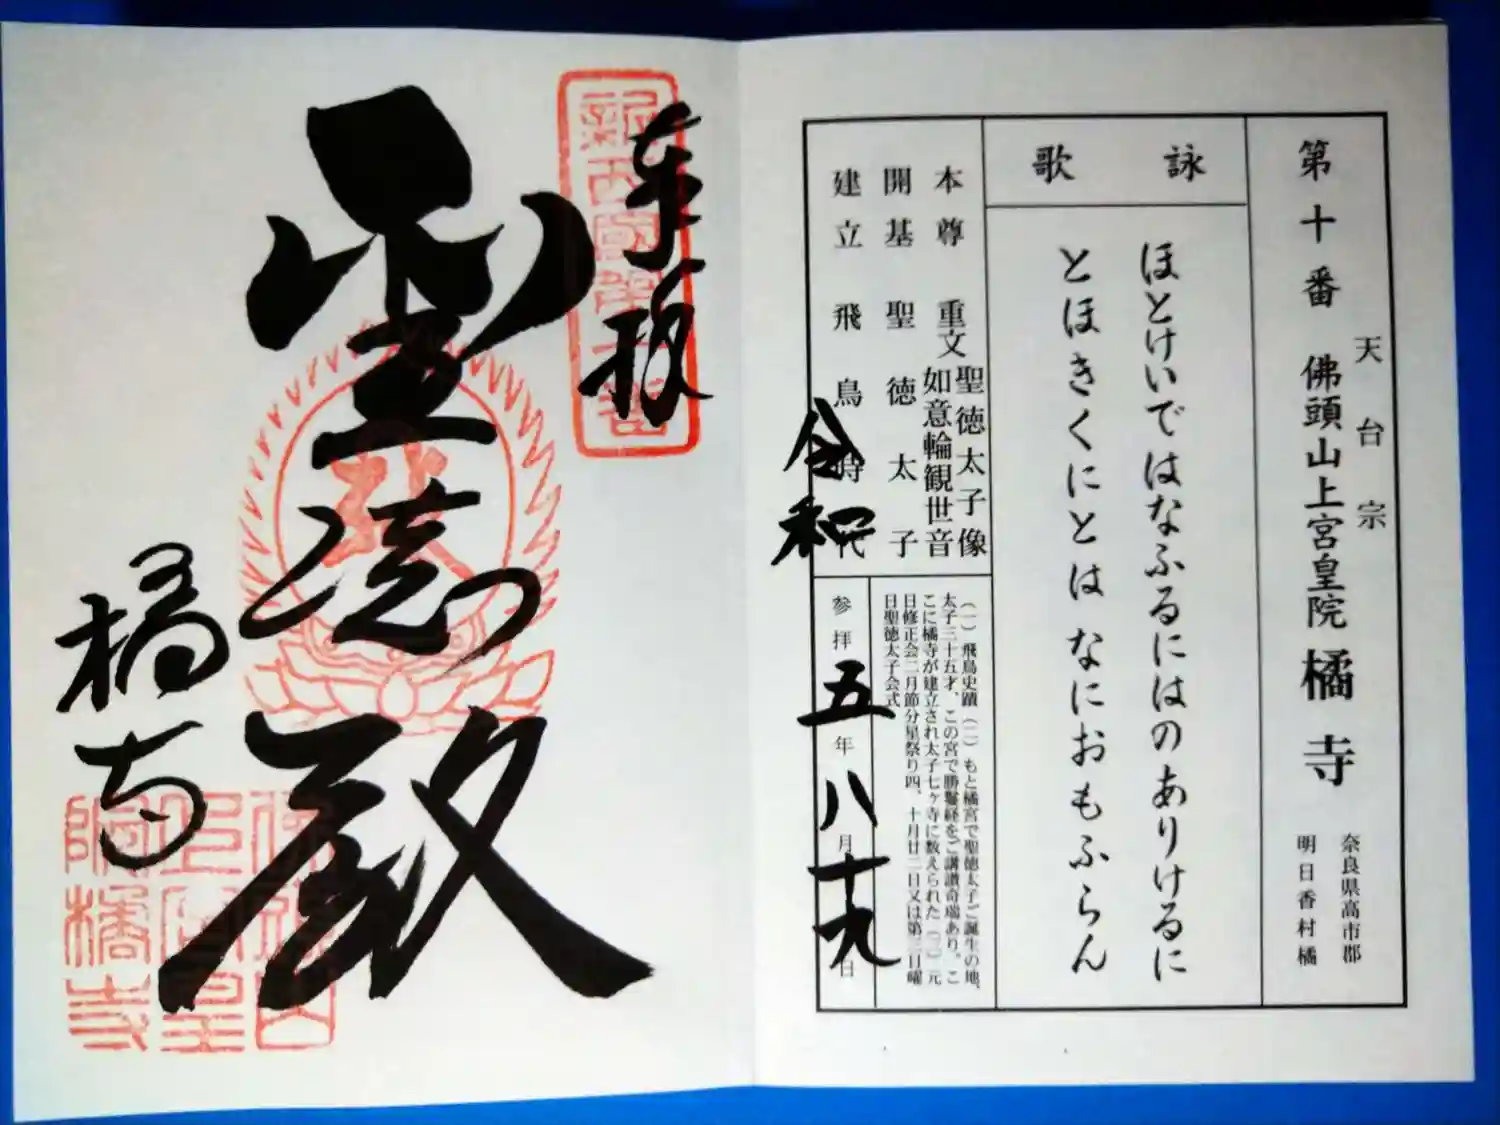 第十番
天台宗
佛頭山上宮皇院 橘寺
奈良県高市郡
明日香村橘
詠歌
ほとけいではなふるにはのありけるに
とほきくにとはなにおもふらん
本尊 重文 聖徳太子像
如意輪観世音
開基 聖徳太子
建立 飛鳥時代
(一)飛鳥史蹟(二)もと橘宮で聖徳太子ご誕生の地、
太子三十五才、この宮で勝鬘経をご講讃奇瑞あり。こ
こに橘寺が建立され太子七ヶ寺に数えられた(三)元
日修正会二月節分星祭り四、十月廿二日又は第三日曜
日聖徳太子会式
参拝 令和五年八月十九日
奉拝
新西国第十番
聖徳殿
橘寺